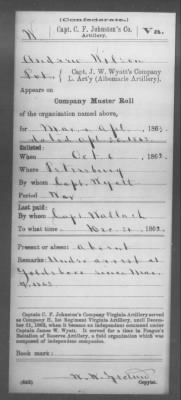 (Confederate.)
W Capt. C. F. Johnston's Co. Artillery. Va.
Andrew Wilson
Capt. J. W. Wyatt's Company
L. Art'y (Albemarle Artillery).
Appears on
Company Muster Roll
of the organization named above,
for Mar & Apl, 1863
dated Apl 30 1863
Enlisted:
When Oct. 6, 186
Where Petersburg
By whom Capt. Wyatt
Period War
Last paid:
By whom Capt. Wallach
To what time Dec. 31, 186
Present or absent Absent
Remarks: Under arrest at
Goldsboro since Mar.
Captain C. F. Johnston's Company Virginia Artillery served
as Company H, 1st Regiment Virginia Artillery, until Decem-
ber 31, 1862, when it became an independent command under
Captain James W. Wyatt. It served for a time in Poague's
Battalion of Reserve Artillery, a field organization which was
composed of independent companies.
Book mark:
(642)
Copyist.